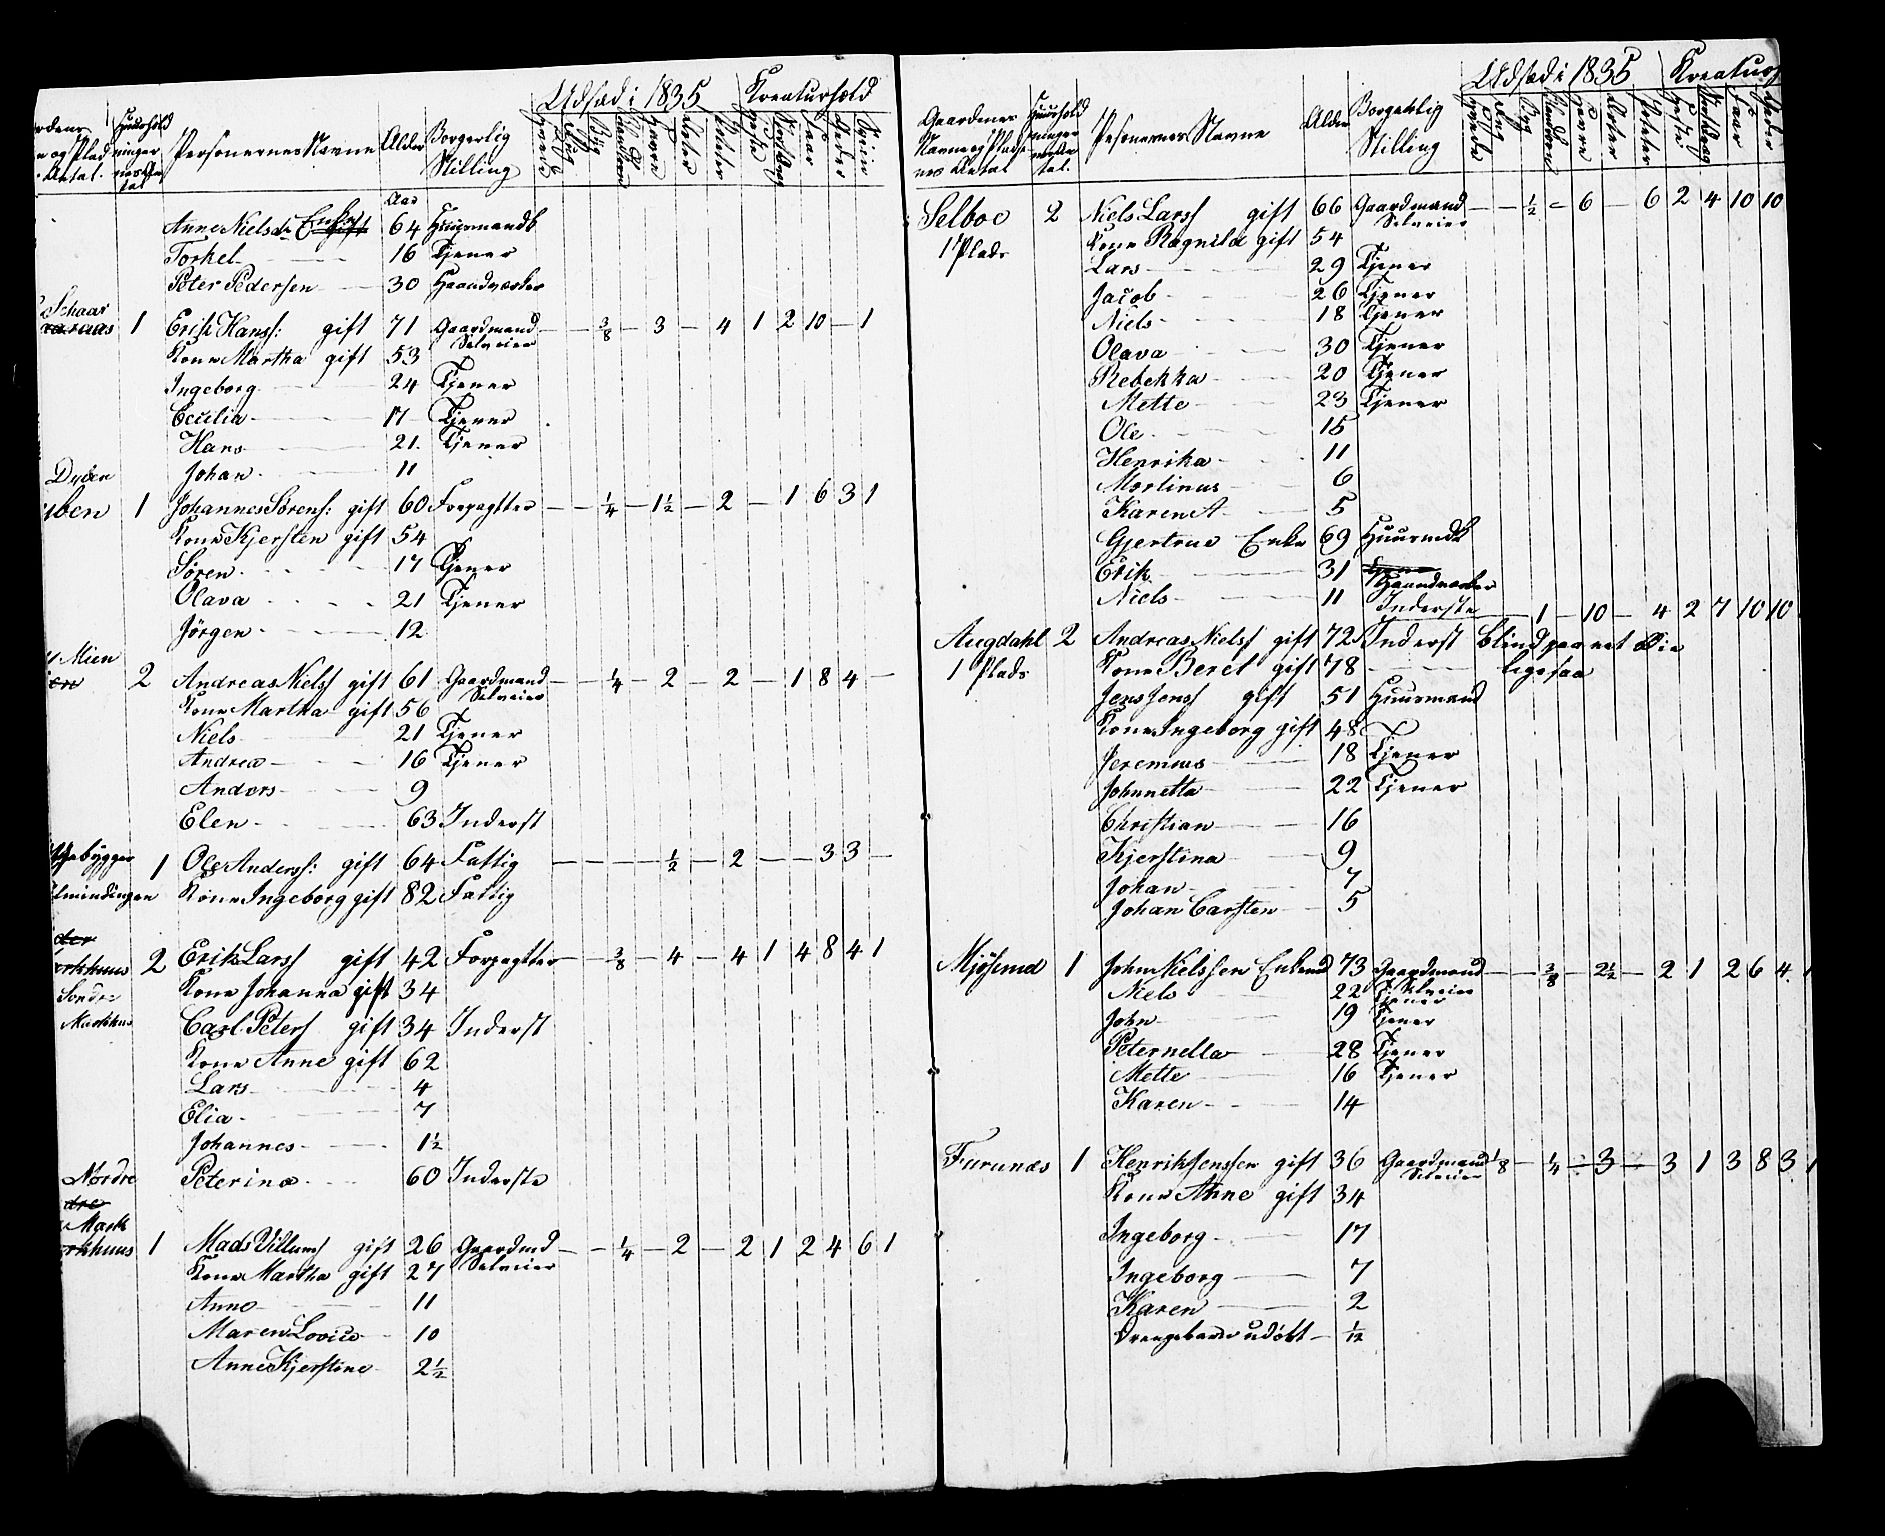 Udsæd i 1835 Kreaturhold
Personernes Navne Alder Borgerlig Stilling
Aar
Anne Nielsdr Enke gift 64 Huusmandk
Torkel 16 Tjener
Peter Pedersen 30 Haandværker
Schaar
1 Erik Hanss: gift 71 Gaardmand Selveier — — 3/8 — 3 — 4 1 2 10 — 1
Kone Martha gift 53
Ingeborg 24 Tjener
Cecilia 17 Tjener
Hans 21. Tjener
Johan 11
1 Johannes Sørens: gift 60 Forpagtter — — 1/4 — 1½ — 2 — 1 6 3 1
Kone Kjersten gift 54
Søren 17 Tjener
Olava 21 Tjener
Jörgen 12
Mien
2 Andreas Nielss gift 61 Gaardmand Selveier — — 1/4 — 2 — 2 — 1 8 4 —
Kone Martha gift 56
Niels 21 Tjener
Andrea 16 Tjener
Anders 9
Elen 63 Inderst
1 Ole Anderss: gift 64 Fattig — — — — ½ — 2 — — 3 3 —
Kone Ingeborg gift 82 Fattig
2 Erik Larss gift 42 Forpagtter — — 3/8 — 4 — 4 1 4 8 4 1
Kone Johanna gift 34
Carl Peters gift 34 Inderst
Kone Anne gift 62
Lars 4
Elia 7
Johannes 1½
Nordre
Peterine 60 Inderste
dre
Mark
1 Mads Villums gift 26 Gaardmd Selveier — — 1/4 — 2 — 2 1 2 4 6 1
Kone Martha gift 27
Anne 11
Maren Lovice 10
Anne Kjerstine 2½
Udsæd i 1835 Kreaturh
Gaardenes Navne og Pladsenes Antal Personernes Navne Alder Borgerlig Stilling
Selboe 2 Niels Larss gift 66 Gaardmand Selveier — — ½ — 6 — 6 2 4 10 10
1 Plads Kone Ragnild gift 54
Lars 29 Tjener
Jacob 26 Tjener
Niels 18 Tjener
Olava 30 Tjener
Rebekka 20 Tjener
Mette 23 Tjener
Ole 15
Henrika 11
Martinus 6
Karen A 5
Gjertrue Enke 69 Huusmdk
Erik 31 Haandværker
Niels 11 Inderste — 1 — 10 — 4 2 7 10 10
Augdahl 2 Andreas Nielss gift 72 Inderst Blind paa et Øie
1 Plads Kone Beret gift 78 ligesaa
Jens Jenss gift 51 Huusmand
Kone Ingeborg gift 48
Jeremias 18 Tjener
Johnnetta 22 Tjener
Christian 16
Kjerstina 9
Johan 7
Johan Carsten 5
1 John Nielssen Enkemd 73 Gaardmand Selveier — — 3/8 — 2½ — 2 1 2 6 4. 1
Niels 22 Tjener
John 19 Tjener
Peternella 28 Tjener
Mette 16 Tjener
Karen 14
Furunæs 1 Henrik Jenssen gift 36 Gaardmand Selveier 1/8 — 1/4 — 3 — 3 1 3 8 3 1
Kone Anne gift 34
Ingeborg 17
Ingeborg 7
Karen 2
Drengebarn udöbt 1/12